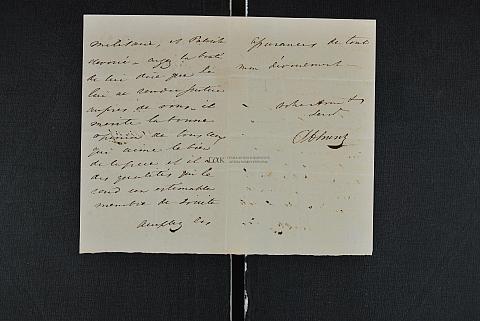 militaire, et Patriote
dévoué — ayez la bonté
de lui dire que la
lui ai rendu justice
auprès de vous, il
mérite la bonne
opinion de tous ceux
qui aime le bien
de la et il a
des qualités qui le
rend un estimable
membre de société
acceptez les
assurances de tout
mon dévouement —
votre
serv.